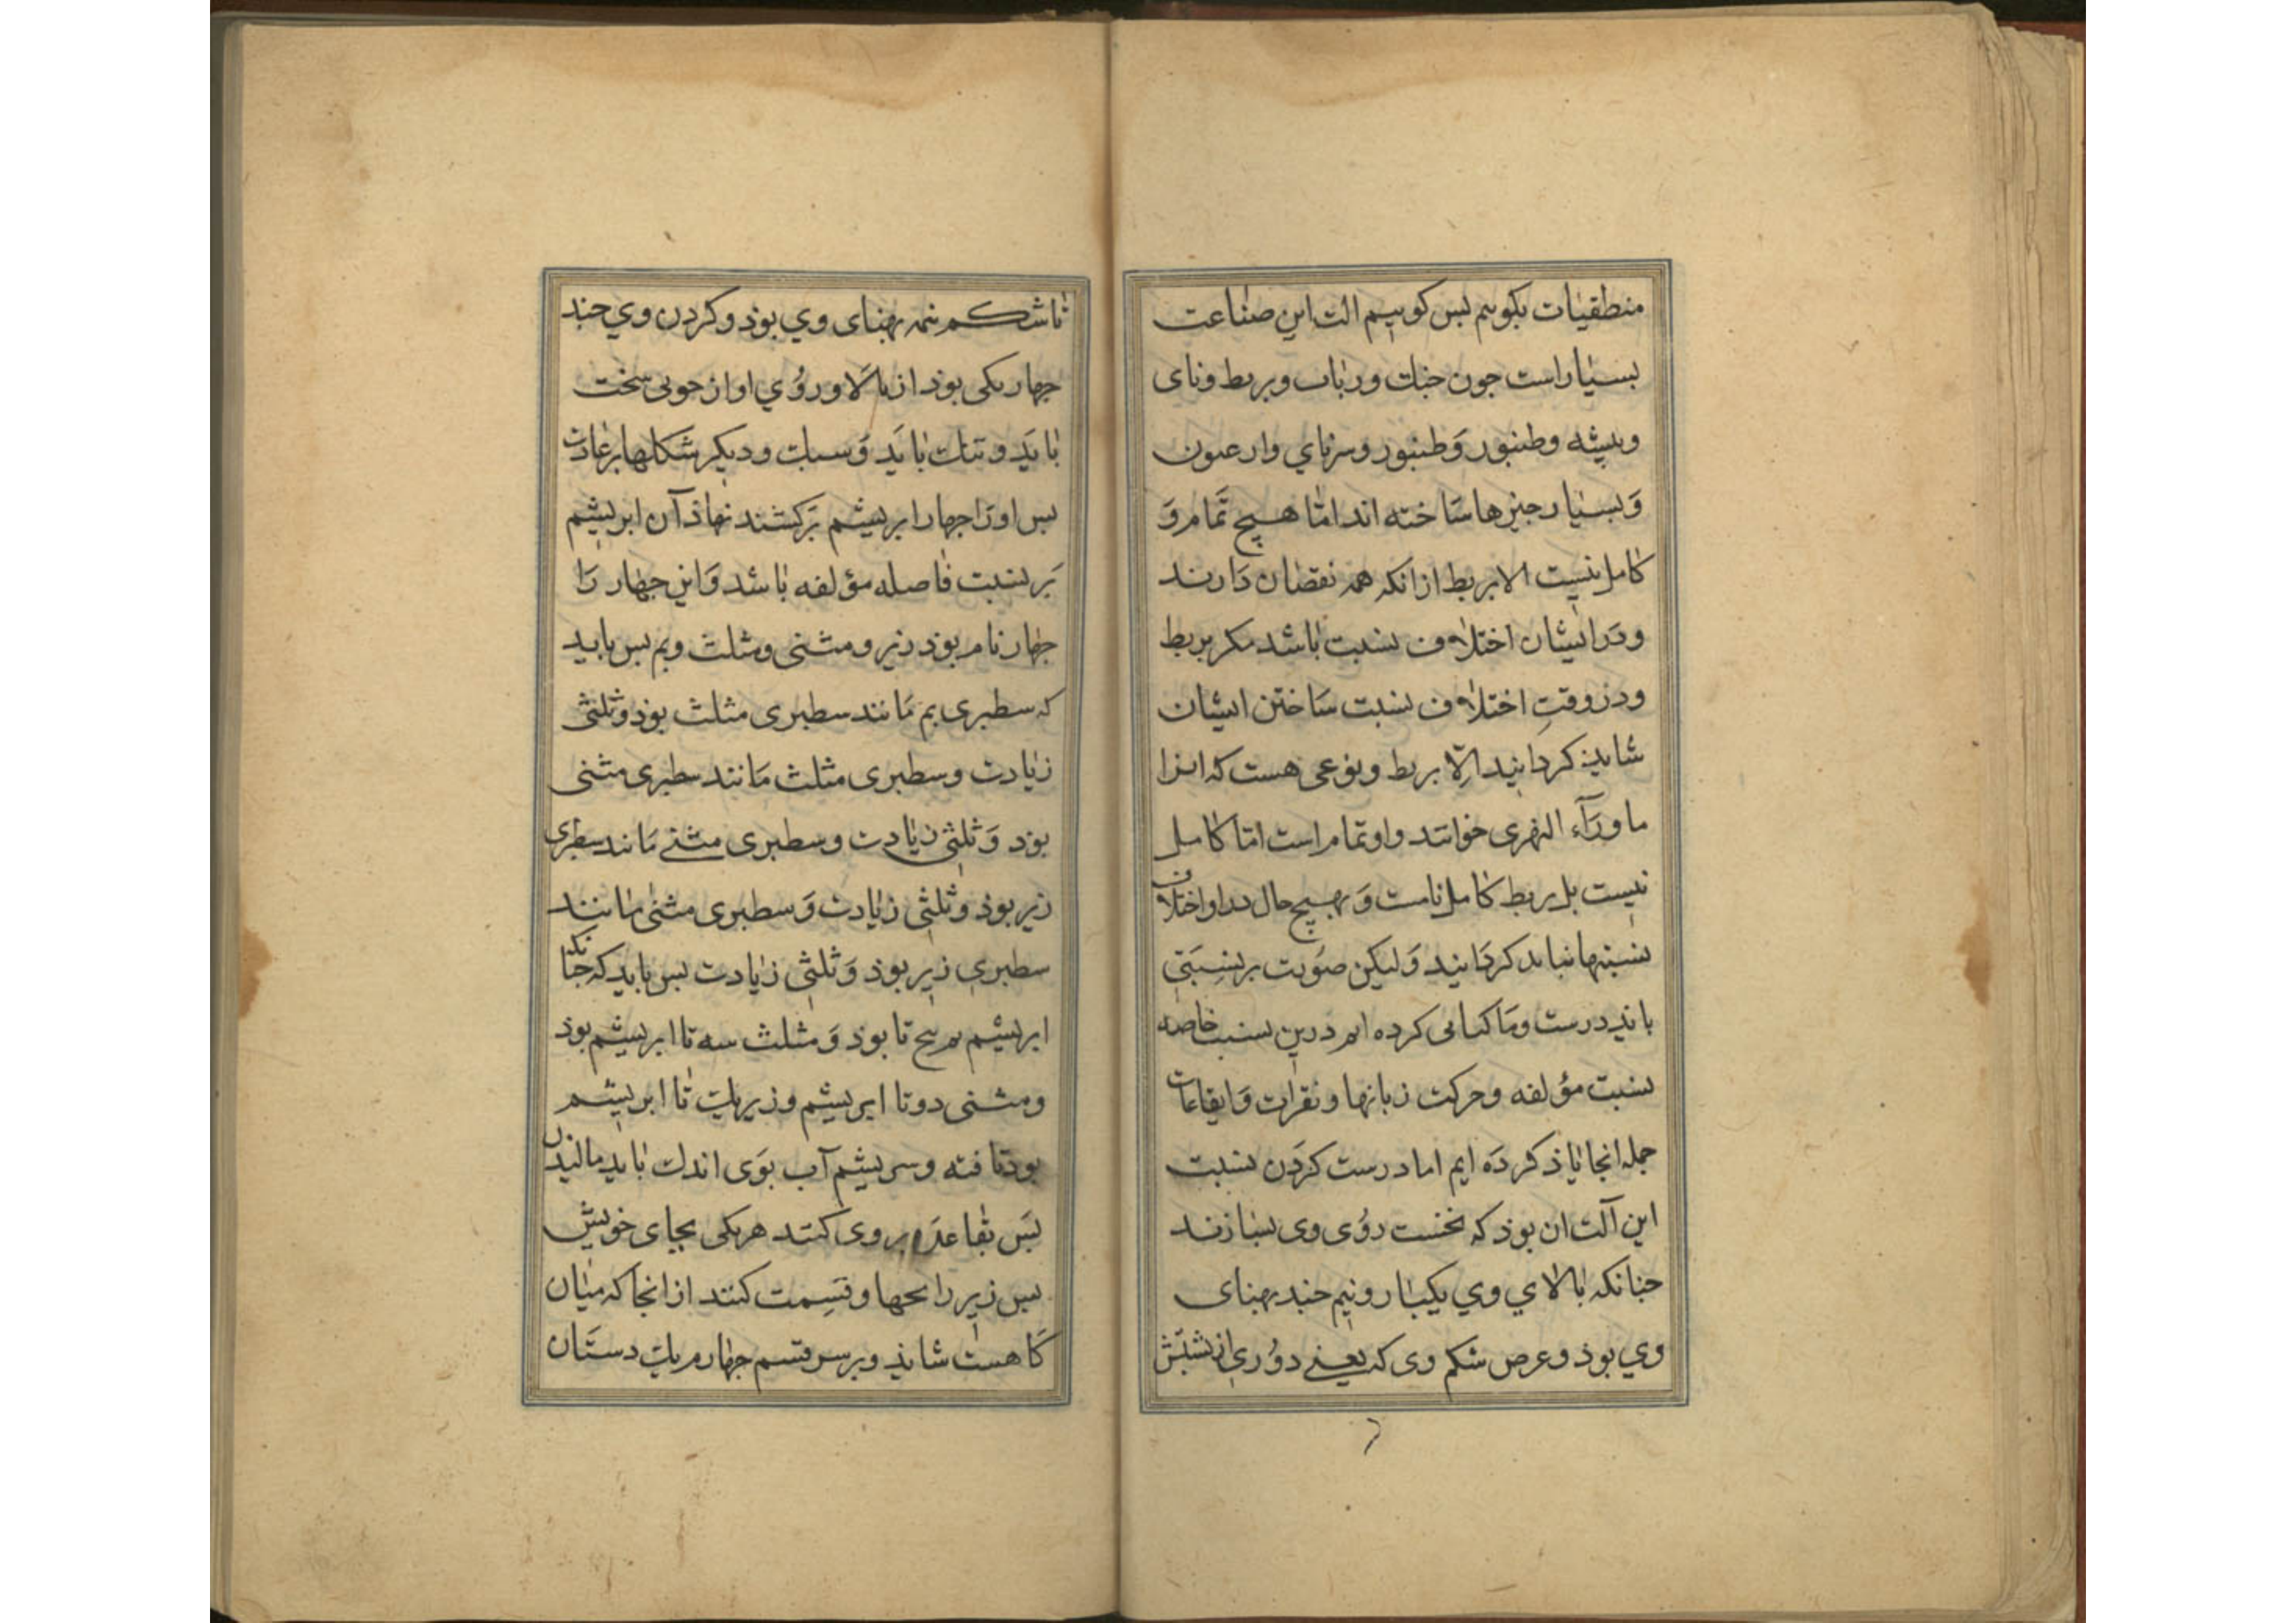 منطقیات بکوییم بس کوییم الت این صناعت
بسیار است جون جنك ورباب وبربط ونای
وبیشه وطنبور وَطنبور وسرنای وارعنون
وَبسیار جیزها سَاخته اند امّا هیچ تمَام وَ
کامل نیست الا بربط ازانکه همه نقصان دَارند
ودَر ایشان اختلاف نسبت باشد مکر بربط
ودر وقتِ اختلاف نسبت سَاختن ایشان
شاید کردانید اِلّا بربط ونوعی هست که انرا
ماورَآء النهری خوانند واو تمام است امّا کامل
نیست بل بربط کامل نامست وَبهیچ حال در او اختلاف
نسبتها نباید کردَانید وَلیکن صوُرت بر نِسبَتی
باید درست ومَا کتابی کرده ایم درین نسبت خاصه
نسبت مؤلفه وحرکت زبانها ونقرات وَایقاعات
جمله انجا یاذ کردَه ایم اما درست کردَن نسبت
این آلت ان بوذ که نخست روُی وی بسازند
جنانکه بالای وي یکبار ونیم جند بهنای
وي بوذ وعرض شکم وی که یعنے دوُری از بشتش
تا شکم نیمه بهنای وي بوذ وکردن وي جند
جهار یکی بوذ از بالَا وروُي او از جوبی سخت
بایَد وتنك بایَد وَسبك ودیکر شکلها بر عَادت
بس اورَا جهار ابریشم بَرکشند نهاذ آن ابریشم
بَر نسبت فاصله مؤلفه باشد وَاین جهار رَا
جهار نام بوذ زیر ومثنی ومثلث وبم بس باید
که سطبری بم مَانند سطبری مثلث بوذ وثلثی
زیادت وسطبری مثلث مَانند سطبری مثنی
بوذ وَثلثی زیادت وسطبری مثنے مَانند سطبری
زیر بوذ وثلثی زیادت وَسطبری مثنی مانند
سطبری زیر بوذ وَثلثی زیادت بس باید که جنانکه
ابریشم بم بنج تا بوذ وَمثلث سه تا ابریشم بوذ
ومثنی دوتا ابریشم وزیر یك تا ابریشم
بوذ تافته وسریشم آب بوَی اندك باید مالیذن
بَس بقاعدَه بروی کنند هریکی بجای خویش
بس زیر را بجهار قسِمت کنند ازانجا که میان
کَاهست شاید وبرسر قسم جهارم یك دستَان